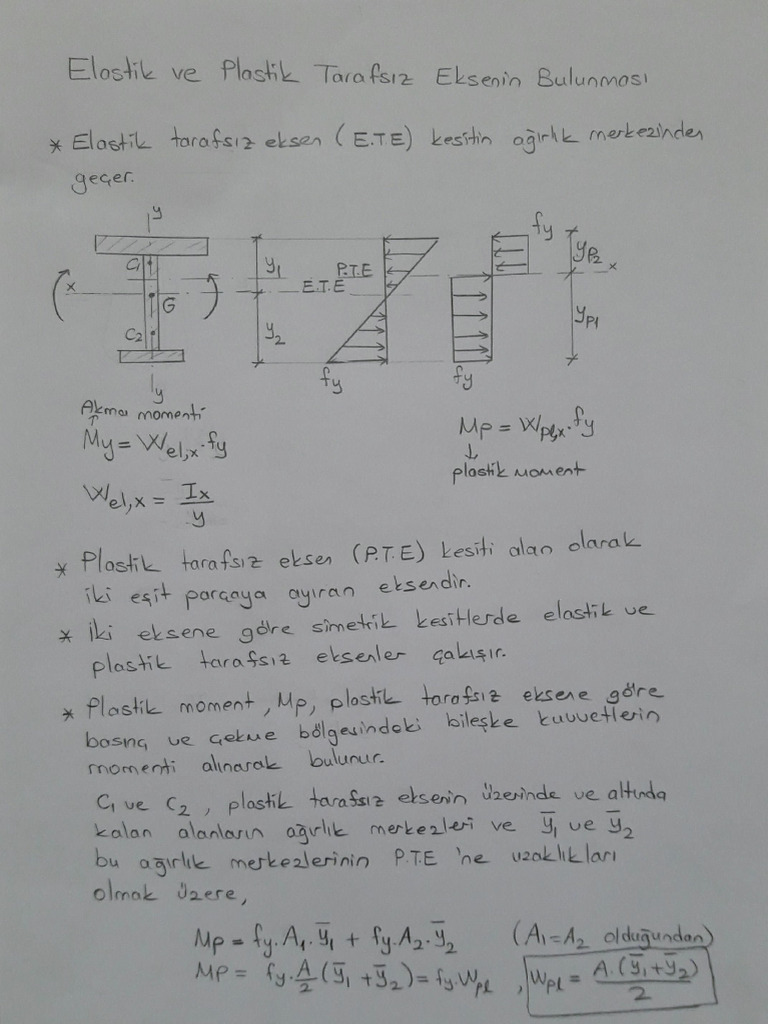 Elastik ve Plastik Tarafsız Eksenin Bulunması
* Elastik tarafsız eksen (E.T.E) kesitin ağırlık merkezinden
geçer.
y
C1
x
G
C2
y
y1
y2
P.T.E
E.T.E
fy
fy
fy
yp2
x
yp1
Akma momenti
My = Wel,x . fy
Wel,x = Ix / y
Mp = Wpl,x . fy
plastik moment
* Plastik tarafsız eksen (P.T.E) kesiti alan olarak
iki eşit parçaya ayıran eksendir.
* İki eksene göre simetrik kesitlerde elastik ve
plastik tarafsız eksenler çakışır.
* Plastik moment, Mp, plastik tarafsız eksene göre
basınç ve çekme bölgesindeki bileşke kuvvetlerin
momenti alınarak bulunur.
C1 ve C2, plastik tarafsız eksenin üzerinde ve altında
kalan alanların ağırlık merkezleri ve ȳ1 ve ȳ2
bu ağırlık merkezlerinin P.T.E 'ne uzaklıkları
olmak üzere,
Mp = fy.A1.ȳ1 + fy.A2.ȳ2 (A1=A2 olduğundan)
Mp = fy.A/2 (ȳ1 + ȳ2) = fy.Wpl , Wpl = A.(ȳ1+ȳ2) / 2